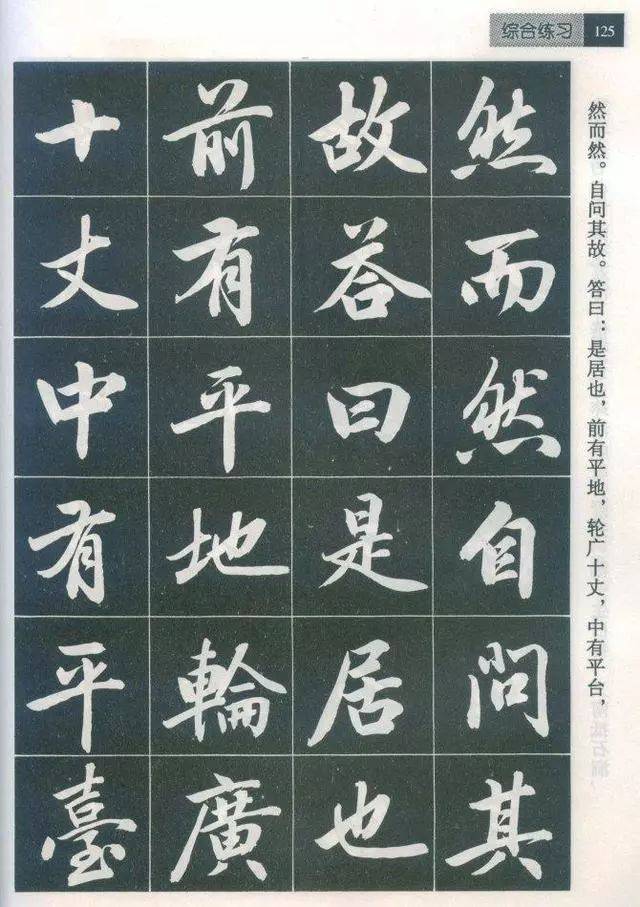 综合练习 125
然而然。自问其故。答曰：是居也，前有平地，轮广十丈，中有平台，
然而然自问其
故答曰是居也
前有平地輪廣
十丈中有平臺